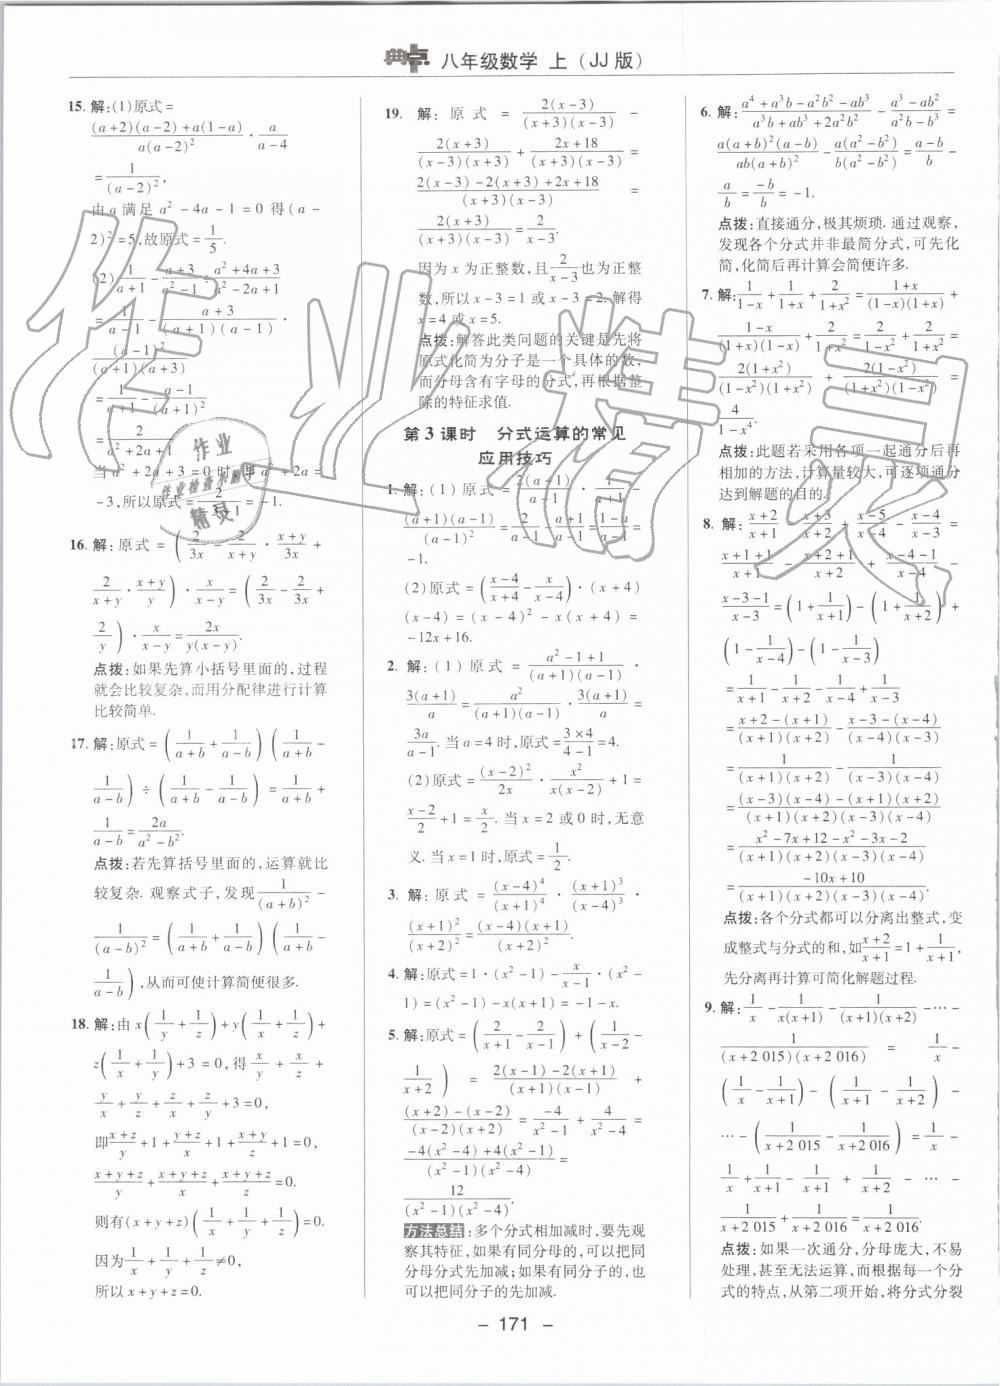 典点 八年级数学 上(JJ版)
15. 解:(1)原式=
\frac{(a+2)(a-2)+a(1-a)}{a(a-2)^2}·\frac{a}{a-4}
=\frac{1}{(a-2)^2},
由 a 满足 a^2-4a-1=0 得(a-
2)^2=5,故原式=\frac{1}{5}.
(2)\frac{1}{a+1}-\frac{a+3}{a^2-1}÷\frac{a^2+4a+3}{a^2-2a+1}
=\frac{1}{a+1}-\frac{a+3}{(a-1)(a+1)}·
\frac{(a-1)^2}{(a+1)(a+3)}
=\frac{1}{a+1}-\frac{a-1}{(a+1)^2}
=\frac{2}{a^2+2a+1}.
当 a^2+2a+3=0 时,即 a^2+2a=
-3,所以原式=\frac{2}{-3+1}=-1.
16. 解:原式=(\frac{2}{3x}-\frac{2}{x+y}·\frac{x+y}{3x}+
\frac{2}{x+y}·\frac{x+y}{y})·\frac{x}{x-y}=(\frac{2}{3x}-\frac{2}{3x}+
\frac{2}{y})·\frac{x}{x-y}=\frac{2x}{y(x-y)}.
点拨:如果先算小括号里面的,过程
就会比较复杂,而用分配律进行计算
比较简单.
17. 解:原式=(\frac{1}{a+b}+\frac{1}{a-b})(\frac{1}{a+b}-
\frac{1}{a-b})÷(\frac{1}{a+b}-\frac{1}{a-b})=\frac{1}{a+b}+
\frac{1}{a-b}=\frac{2a}{a^2-b^2}.
点拨:若先算括号里面的,运算就比
较复杂. 观察式子,发现\frac{1}{(a+b)^2}-
\frac{1}{(a-b)^2}=(\frac{1}{a+b}+\frac{1}{a-b})(\frac{1}{a+b}-
\frac{1}{a-b}),从而可使计算简便很多.
18. 解:由 x(\frac{1}{y}+\frac{1}{z})+y(\frac{1}{x}+\frac{1}{z})+
z(\frac{1}{x}+\frac{1}{y})+3=0,得\frac{x}{y}+\frac{x}{z}+
\frac{y}{x}+\frac{y}{z}+\frac{z}{x}+\frac{z}{y}+3=0,
即\frac{x+z}{y}+1+\frac{y+z}{x}+1+\frac{x+y}{z}+1=0,
\frac{x+y+z}{y}+\frac{x+y+z}{x}+\frac{x+y+z}{z}=0.
则有(x+y+z)(\frac{1}{x}+\frac{1}{y}+\frac{1}{z})=0.
因为\frac{1}{x}+\frac{1}{y}+\frac{1}{z}≠0,
所以 x+y+z=0.
19. 解:原式=\frac{2(x-3)}{(x+3)(x-3)}-
\frac{2(x+3)}{(x-3)(x+3)}+\frac{2x+18}{(x+3)(x-3)}=
\frac{2(x-3)-2(x+3)+2x+18}{(x+3)(x-3)}=
\frac{2(x+3)}{(x+3)(x-3)}=\frac{2}{x-3}.
因为 x 为正整数,且\frac{2}{x-3}也为正整
数,所以 x-3=1 或 x-3=2. 解得
x=4 或 x=5.
点拨:解答此类问题的关键是先将
原式化简为分子是一个具体的数,
而分母含有字母的分式,再根据整
除的特征求值.
第3课时 分式运算的常见
应用技巧
1. 解:(1)原式=\frac{2(a+1)}{a-1}·\frac{1}{a+1}-
\frac{(a+1)(a-1)}{(a-1)^2}=\frac{2}{a-1}-\frac{a+1}{a-1}=\frac{1-a}{a-1}=
-1.
(2)原式=(\frac{x-4}{x+4}-\frac{x}{x-4})·(x+4)
(x-4)=(x-4)^2-x(x+4)=
-12x+16.
2. 解:(1)原式=\frac{a^2-1+1}{(a+1)(a-1)}·
\frac{3(a+1)}{a}=\frac{a^2}{(a+1)(a-1)}·\frac{3(a+1)}{a}=
\frac{3a}{a-1}. 当 a=4 时,原式=\frac{3×4}{4-1}=4.
(2)原式=\frac{(x-2)^2}{2x}·\frac{x^2}{x(x-2)}+1=
\frac{x-2}{2}+1=\frac{x}{2}. 当 x=2 或 0 时,无意
义. 当 x=1 时,原式=\frac{1}{2}.
3. 解:原式=\frac{(x-4)^4}{(x+1)^4}·\frac{(x+1)^3}{(x-4)^3}·
\frac{(x+1)^2}{(x+2)^2}=\frac{(x-4)(x+1)}{(x+2)^2}.
4. 解:原式=1·(x^2-1)-\frac{x}{x-1}·(x^2-
1)=(x^2-1)-x(x+1)=-1-x.
5. 解:原式=(\frac{2}{x+1}-\frac{2}{x-1})+(\frac{1}{x-2}-
\frac{1}{x+2})=\frac{2(x-1)-2(x+1)}{(x+1)(x-1)}+
\frac{(x+2)-(x-2)}{(x-2)(x+2)}=\frac{-4}{x^2-1}+\frac{4}{x^2-4}=
\frac{-4(x^2-4)+4(x^2-1)}{(x^2-1)(x^2-4)}=
\frac{12}{(x^2-1)(x^2-4)}.
方法总结:多个分式相加减时,要先观
察其特征,如果有同分母的,可以把同
分母分式先加减;如果有同分子的,也
可以把同分子的先加减.
6. 解:\frac{a^4+a^3b-a^2b^2-ab^3}{a^3b+ab^3+2a^2b^2}-\frac{a^3-ab^2}{a^2b-b^3}=
\frac{a(a+b)^2(a-b)}{ab(a+b)^2}-\frac{a(a^2-b^2)}{b(a^2-b^2)}=\frac{a-b}{b}-
\frac{a}{b}=\frac{-b}{b}=-1.
点拨:直接通分,极其烦琐. 通过观察,
发现各个分式并非最简分式,可先化
简,化简后再计算会简便许多.
7. 解:\frac{1}{1-x}+\frac{1}{1+x}+\frac{2}{1+x^2}=\frac{1+x}{(1-x)(1+x)}+
\frac{1-x}{(1+x)(1-x)}+\frac{2}{1+x^2}=\frac{2}{1-x^2}+\frac{2}{1+x^2}=
\frac{2(1+x^2)}{(1-x^2)(1+x^2)}+\frac{2(1-x^2)}{(1+x^2)(1-x^2)}=
\frac{4}{1-x^4}.
点拨:此题若采用各项一起通分后再
相加的方法,计算量较大,可逐项通分
达到解题的目的.
8. 解:\frac{x+2}{x+1}-\frac{x+3}{x+2}+\frac{x-5}{x-4}-\frac{x-4}{x-3}=
\frac{x+1+1}{x+1}-\frac{x+2+1}{x+2}+\frac{x-4-1}{x-4}-
\frac{x-3-1}{x-3}=(1+\frac{1}{x+1})-(1+\frac{1}{x+2})+
(1-\frac{1}{x-4})-(1-\frac{1}{x-3})
=\frac{1}{x+1}-\frac{1}{x+2}-\frac{1}{x-4}+\frac{1}{x-3}
=\frac{x+2-(x+1)}{(x+1)(x+2)}-\frac{x-3-(x-4)}{(x-4)(x-3)}
=\frac{1}{(x+1)(x+2)}-\frac{1}{(x-3)(x-4)}
=\frac{(x-3)(x-4)-(x+1)(x+2)}{(x+1)(x+2)(x-3)(x-4)}
=\frac{x^2-7x+12-x^2-3x-2}{(x+1)(x+2)(x-3)(x-4)}
=\frac{-10x+10}{(x+1)(x+2)(x-3)(x-4)}.
点拨:各个分式都可以分离出整式,变
成整式与分式的和,如\frac{x+2}{x+1}=1+\frac{1}{x+1},
先分离再计算可简化解题过程.
9. 解:\frac{1}{x}-\frac{1}{x(x+1)}-\frac{1}{(x+1)(x+2)}-…-
\frac{1}{(x+2 015)(x+2 016)}=\frac{1}{x}-
(\frac{1}{x}-\frac{1}{x+1})-(\frac{1}{x+1}-\frac{1}{x+2})-
…-(\frac{1}{x+2 015}-\frac{1}{x+2 016})=\frac{1}{x}-
\frac{1}{x}+\frac{1}{x+1}-\frac{1}{x+1}+\frac{1}{x+2}-…-
\frac{1}{x+2 015}+\frac{1}{x+2 016}=\frac{1}{x+2 016}.
点拨:如果一次通分,分母庞大,不易
处理,甚至无法运算,而根据每一个分
式的特点,从第二项开始,将分式分裂
作业精灵
作业
作业检查小助手
精灵
- 171 -